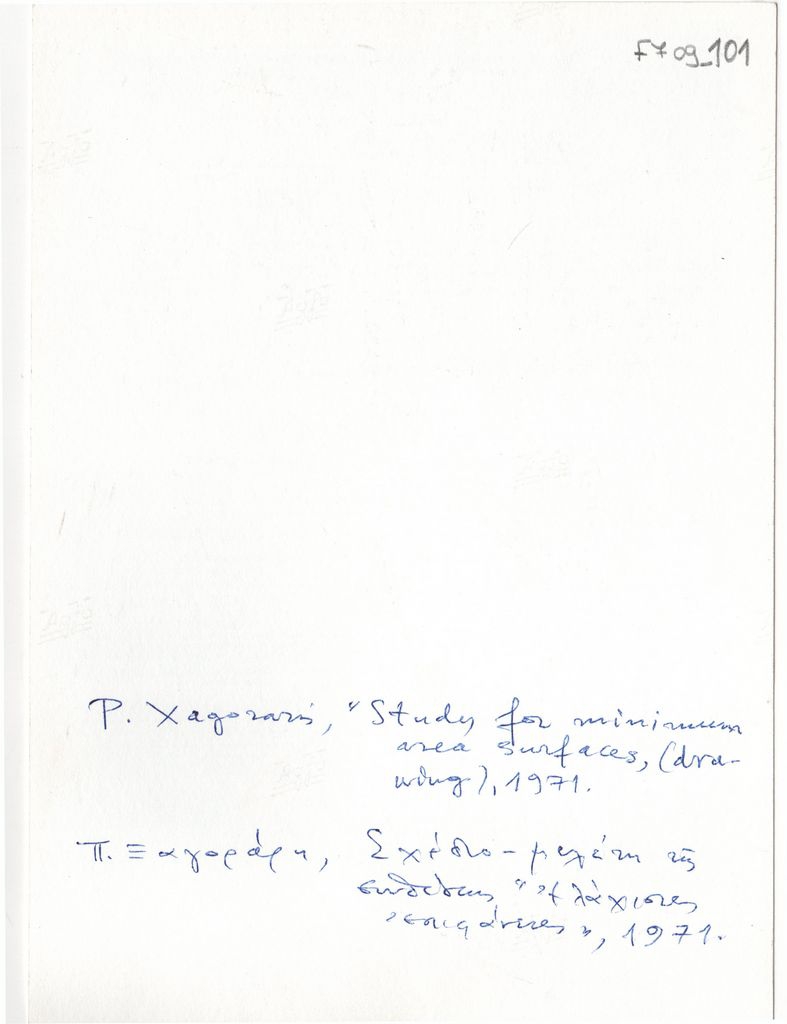 F709_101
P. Xagoraris, "Study for minimum
area surfaces, (dra-
wing), 1971.
Π. Ξαγοράρη, Σχέδιο-μελέτη τῆς
συνθέσεως "ἐλάχιστες
ἐπιφάνειες", 1971.